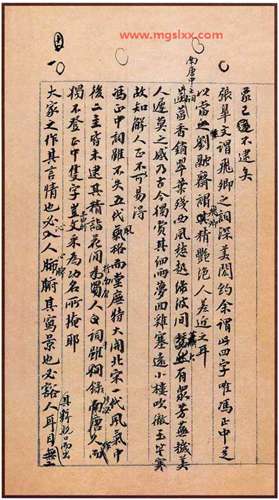 www.mgslxx.com
象已不逮矣
張皋文謂飛卿之詞深美閎約余謂此四字唯馮正中足
以當之劉融齋謂飛卿精艷絕人差近之耳
南唐中主詞
菡萏香銷翠葉殘西風愁起綠波間大有衆芳蕪穢美
人遲莫之感乃古今獨賞其細雨夢回雞塞遠小樓吹徹玉笙寒
故知解人正不可易得
馮正中詞雖不失五代風格而堂廡特大開北宋一代風氣中
後二主皆未逮其精詣花間詞雖錄南唐人
獨不登正中隻字豈文采為功名所掩耶
大家之作其言情也必沁人心脾其寫景也必豁人耳目
其辭脫口而出